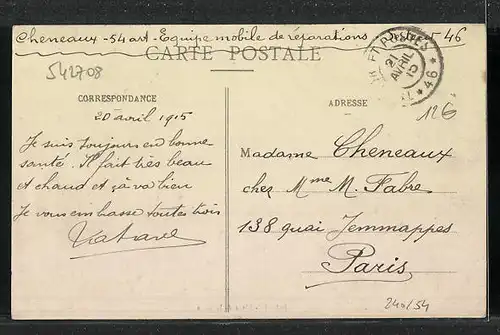 Cheneaux - 54 art - Equipe mobile de réparations 46
CARTE POSTALE
542708
CORRESPONDANCE
20 avril 1915
Je suis toujours en bonne
santé. Il fait très beau
et chaud et ça va bien
Je vous embrasse toutes trois
ADRESSE
21
AVRIL
15
* 46 *
126
Madame Cheneaux
chez Mme M. Fabre
138 quai Jemmappes
Paris
240/54